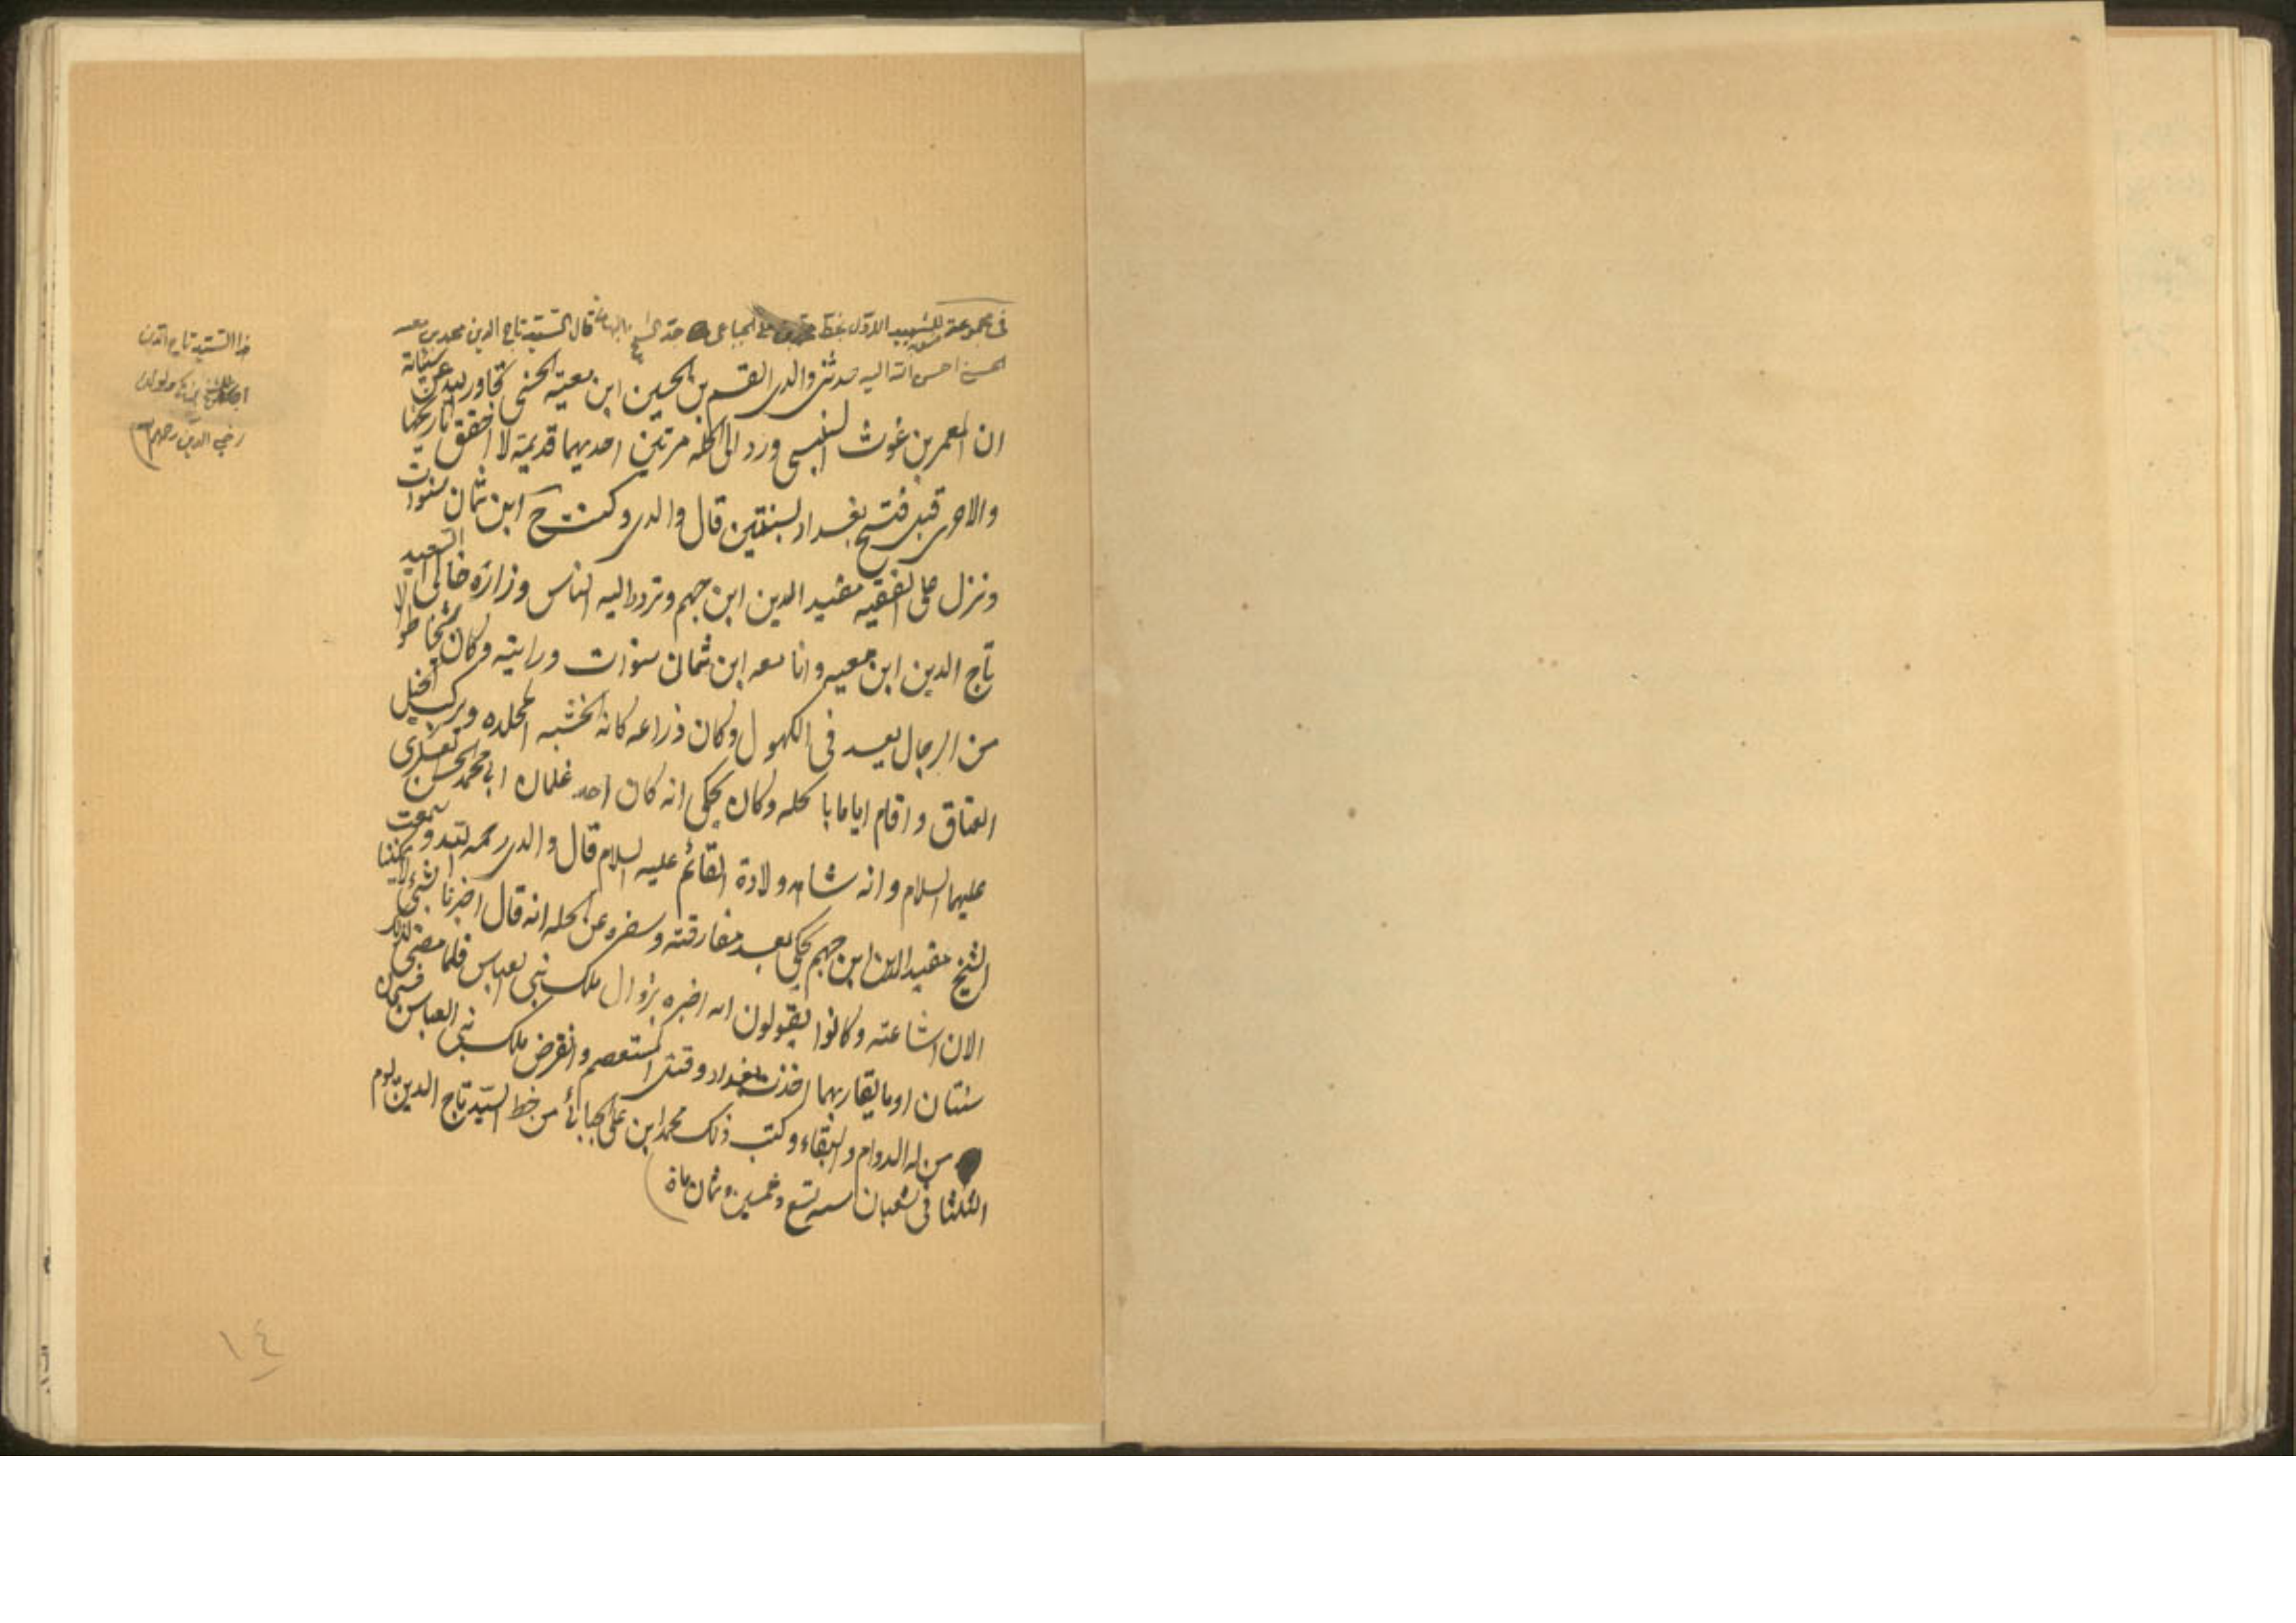 في مجموعة للشهيد الاول بخط محمد بن علي الجباعي جد الشيخ البهائي قال السيد تاج الدين محمد بن معيه
الحسني احسن الله اليه حدثني والدي القسم بن الحسين ابن معية الحسني تجاوز الله عن سيئاته
ان المعمر بن غوث السنبسي ورد الى الحله مرتين احديهما قديمة لا احقق تاريخها
والاخرى قبل فتح بغداد بسنتين قال والدي وكنت ح ابن ثمان سنوات
ونزل على الفقيه مفيد الدين ابن جهم وتردد اليه الناس وزاره خالي السعيد
تاج الدين ابن معيه وانا معه ابن ثمان سنوات ورايته وكان شخصا طوالا
من الرجال يعد في الكهول وكان ذراعه كانه الخشبه المجلده ويركب الخيل
العتاق واقام اياما بالحله وكان يحكي انه كان احد غلمان ابي محمد الحسن العسكري
عليهما السلام وانه شاهد ولادة القائم عليه السلام قال والدي رحمه الله وسمعت
الشيخ مفيد الدين ابن جهم يحكي بعد مفارقته وسفره عن الحله انه قال اخبرنا بشيء لا يمكننا
الان اشاعته وكانوا يقولون انه اخبره بزوال ملك بني العباس فلما مضى لذلك
سنتان او ما يقاربهما اخذت بغداد وقتل المستعصم وانقرض ملك بني العباس فسبحان
من له الدوام والبقاء وكتب ذلك محمد ابن علي الجبائي من خط السيد تاج الدين يوم
الثلثا في شعبان سنه تسع وخمسين وثمان ماة
هذا السيد تاج الدين
رضي الدين رحمهم
١٤